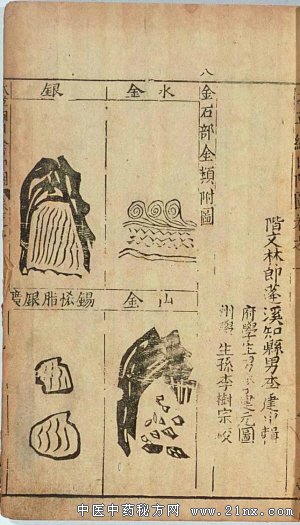 階文林郎蓬溪知縣男李建中輯
府學生男李建元圖
州學生孫李樹宗校
八
金石部金類附圖
水金
銀
山金
錫恡脂銀礦
中医中药秘方网
www.21nx.com